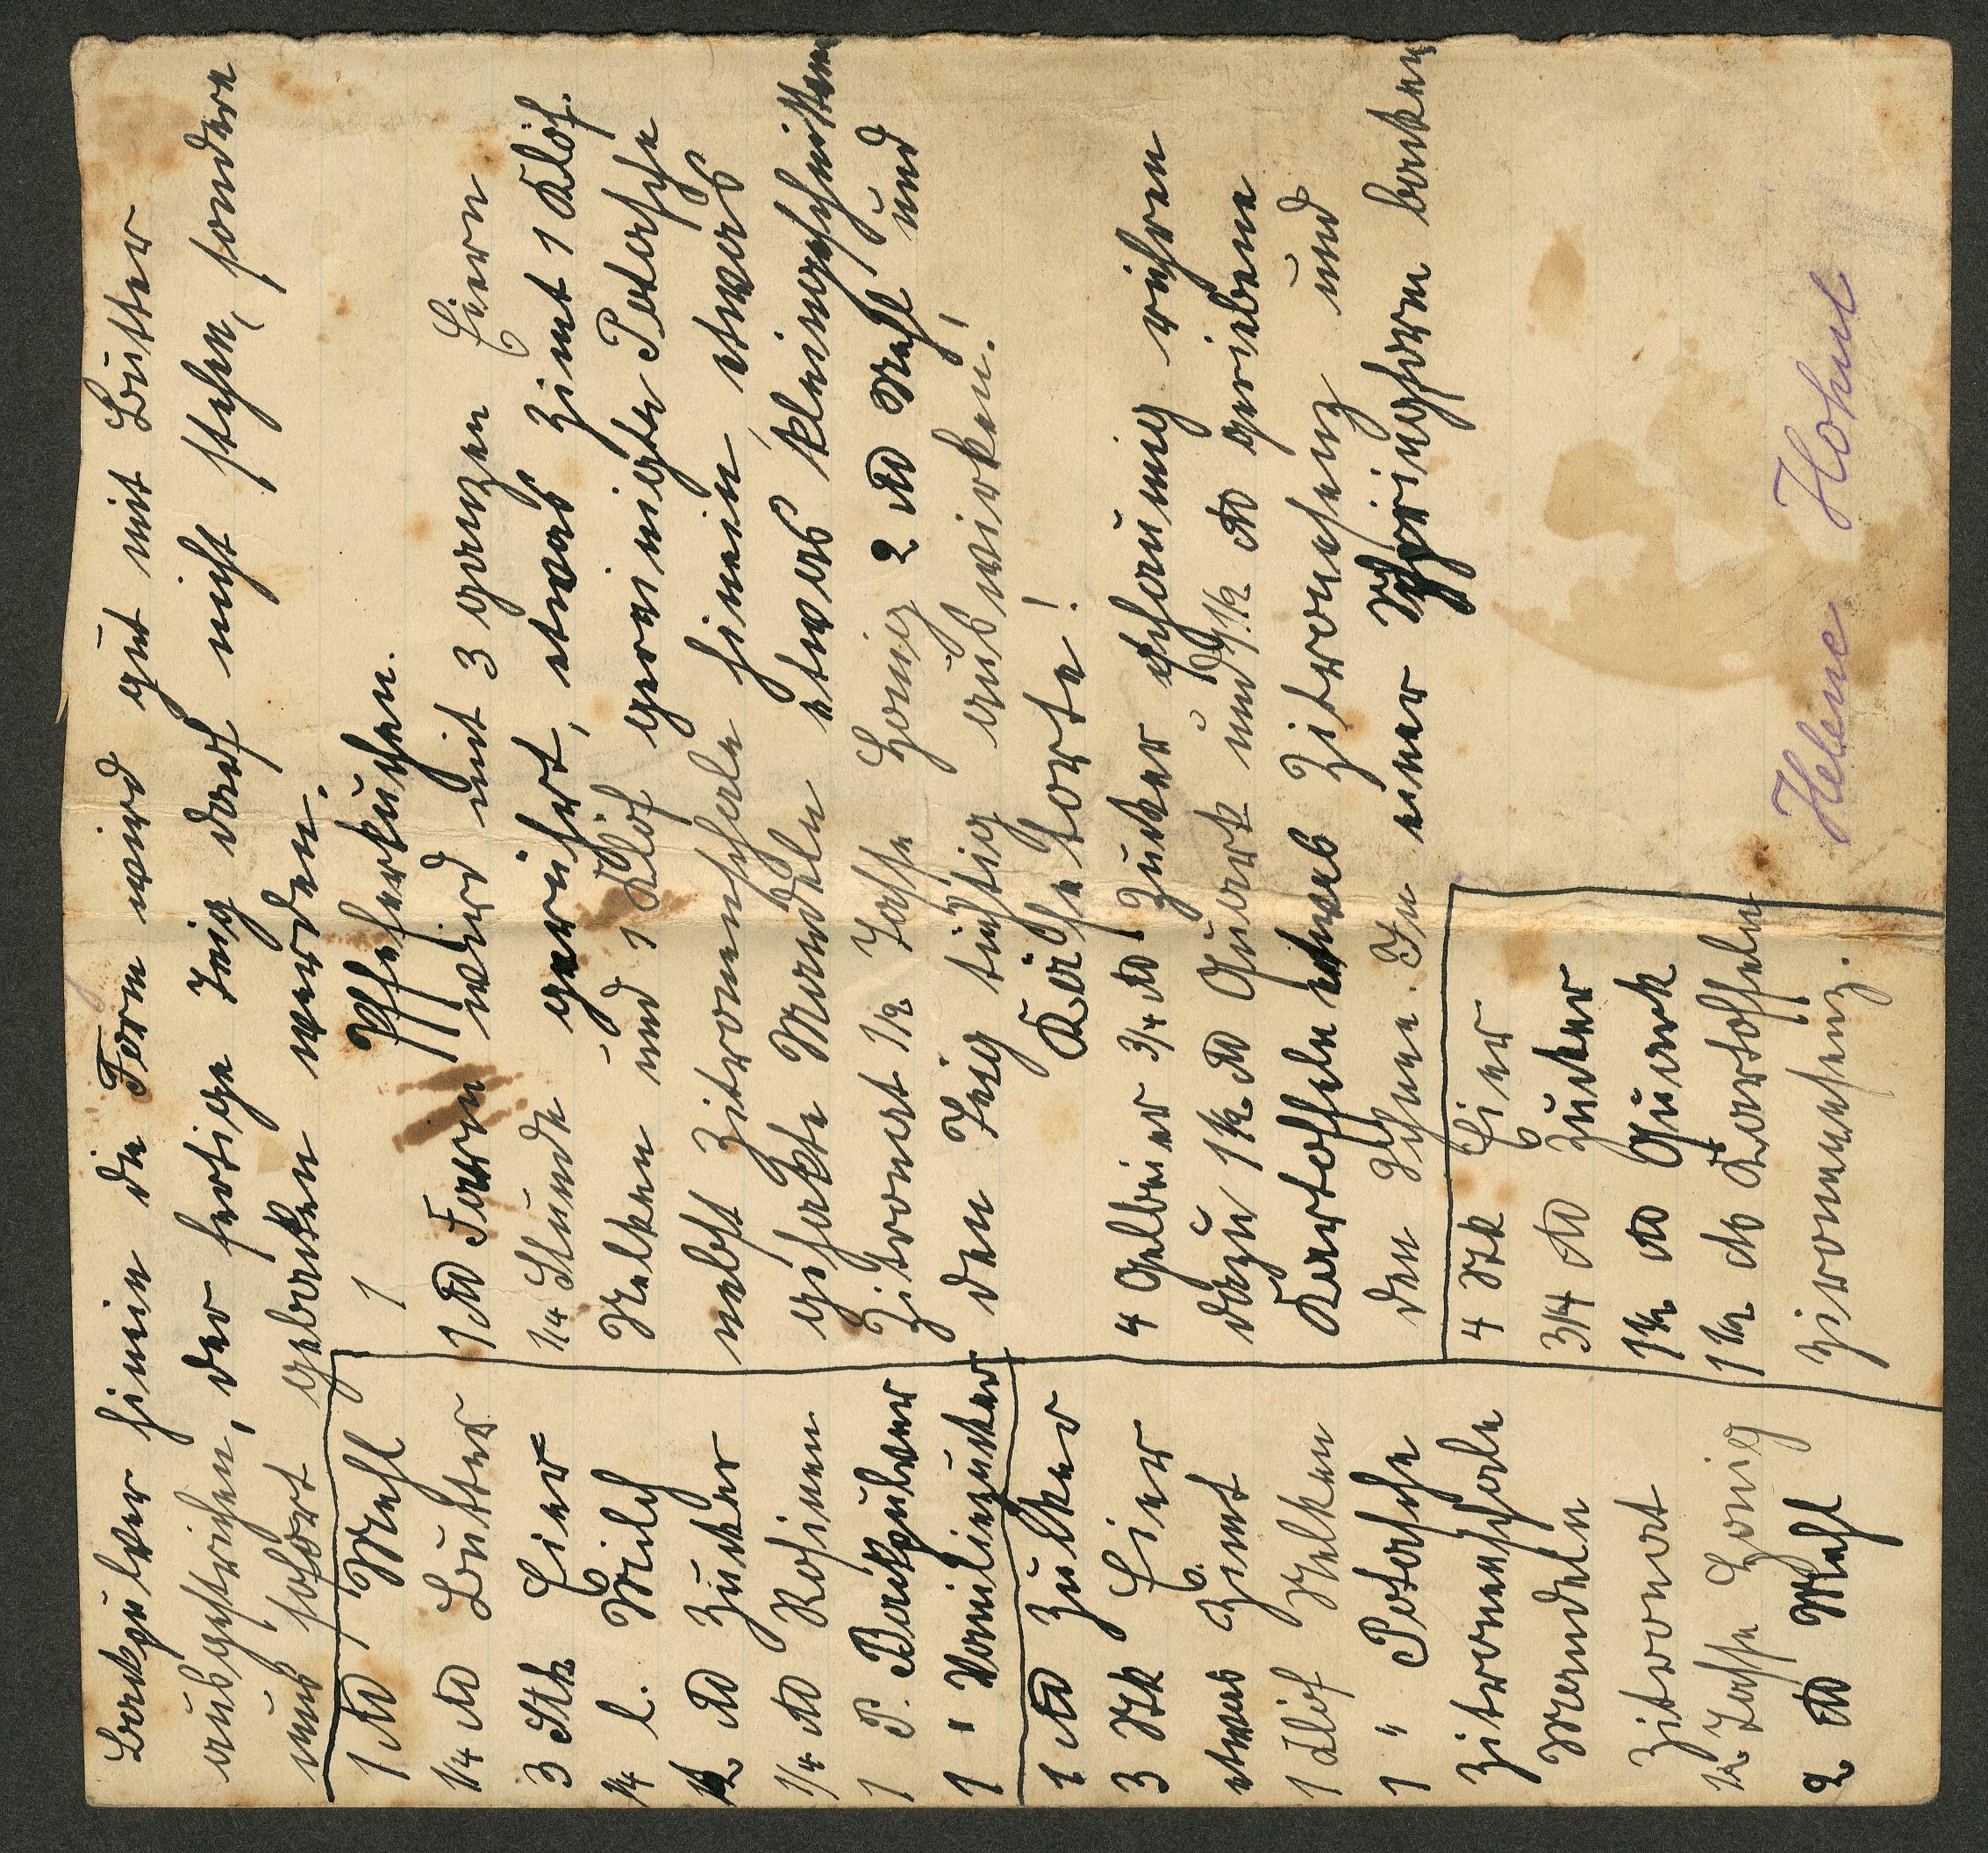 Backpulver hinein die Form wird gut mit Butter
ausgestrichen, der fertige Teig darf nicht stehen, sondern
muß sofort gebacken werden.
1 ℔ Mehl
1/4 ℔ Butter
3 Stk Eier
1/4 l. Milch
1/2 ℔ Zucker
1/4 ℔ Rosinen
1 P. Backpulver
1 " Vanilinzucker
1 ℔ Zucker
3 Stk Eier
etwas Zimt
1 Löf Nelken
1 " Potasche
Zitronenschale
Mandeln
Zitronat
1/2 Tasse Honig
2 ℔ Mehl
Pfefferkuchen.
1 ℔ Farin wird mit 3 ganzen Eiern
1/4 Stunde gerührt, etwas Zimt 1 Klöf.
Nelken und 1 Klöf gereinigte Potasche
nebst Zitronenschale hinein, etwas
gehakte Mandeln etwas kleingeschnitten
Zitronat 1/2 Tasse Honig 2 ℔ Mehl und
den Teig tüchtig auswirken!
Käsetorte!
4 Gelbeier 3/4 ℔ Zucker schaumig rühren
dazu 1 1/2 ℔ Quark und 1 1/2 ℔ geriebene
Kartoffeln etwas Zitronesenz und
den Schnee. In einer Springform backen
4 Stk Eier
3/4 ℔ Zucker
1 1/2 ℔ Quark
1 1/2 ℔ Kartoffeln
Zironenesenz.
Helene Hohut